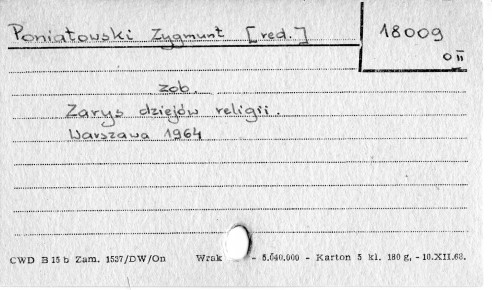 Poniatowski Zygmunt [red.]
18009
0 II
zob.
Zarys dziejów religii.
Warszawa 1964
CWD B 15 b Zam. 1537/DW/On Wrak - 5.640.000 - Karton 5 kl. 180 g, - 10.XII.68.